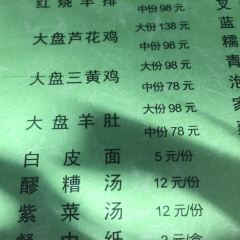 红烧羊排 中份98元
大份138元
大盘芦花鸡 中份98元
大份98元
大盘三黄鸡 中份78元
大份98元
大盘羊肚 中份78元
白皮面 5元/份
醪糟汤 12元/份
紫菜汤 12元/份
餐巾纸 2元/盒
蓝
糯
青
泡